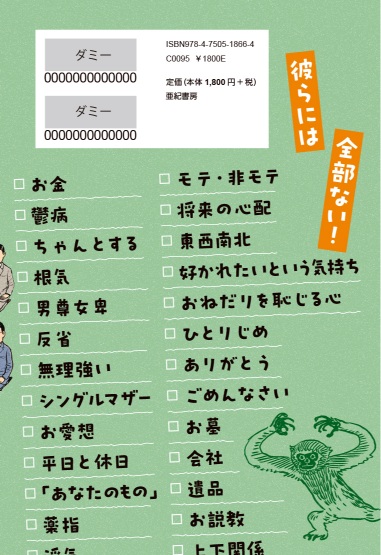 ダミー
0000000000000
ダミー
0000000000000
ISBN978-4-7505-1866-4
C0095 ￥1800E
定価(本体1,800円+税)
亜紀書房
彼らには
全部ない!
お金
鬱病
ちゃんとする
根気
男尊女卑
反省
無理強い
シングルマザー
お愛想
平日と休日
「あなたのもの」
薬指
浮気
モテ・非モテ
将来の心配
東西南北
好かれたいという気持ち
おねだりを恥じる心
ひとりじめ
ありがとう
ごめんなさい
お墓
会社
遺品
お説教
上下関係